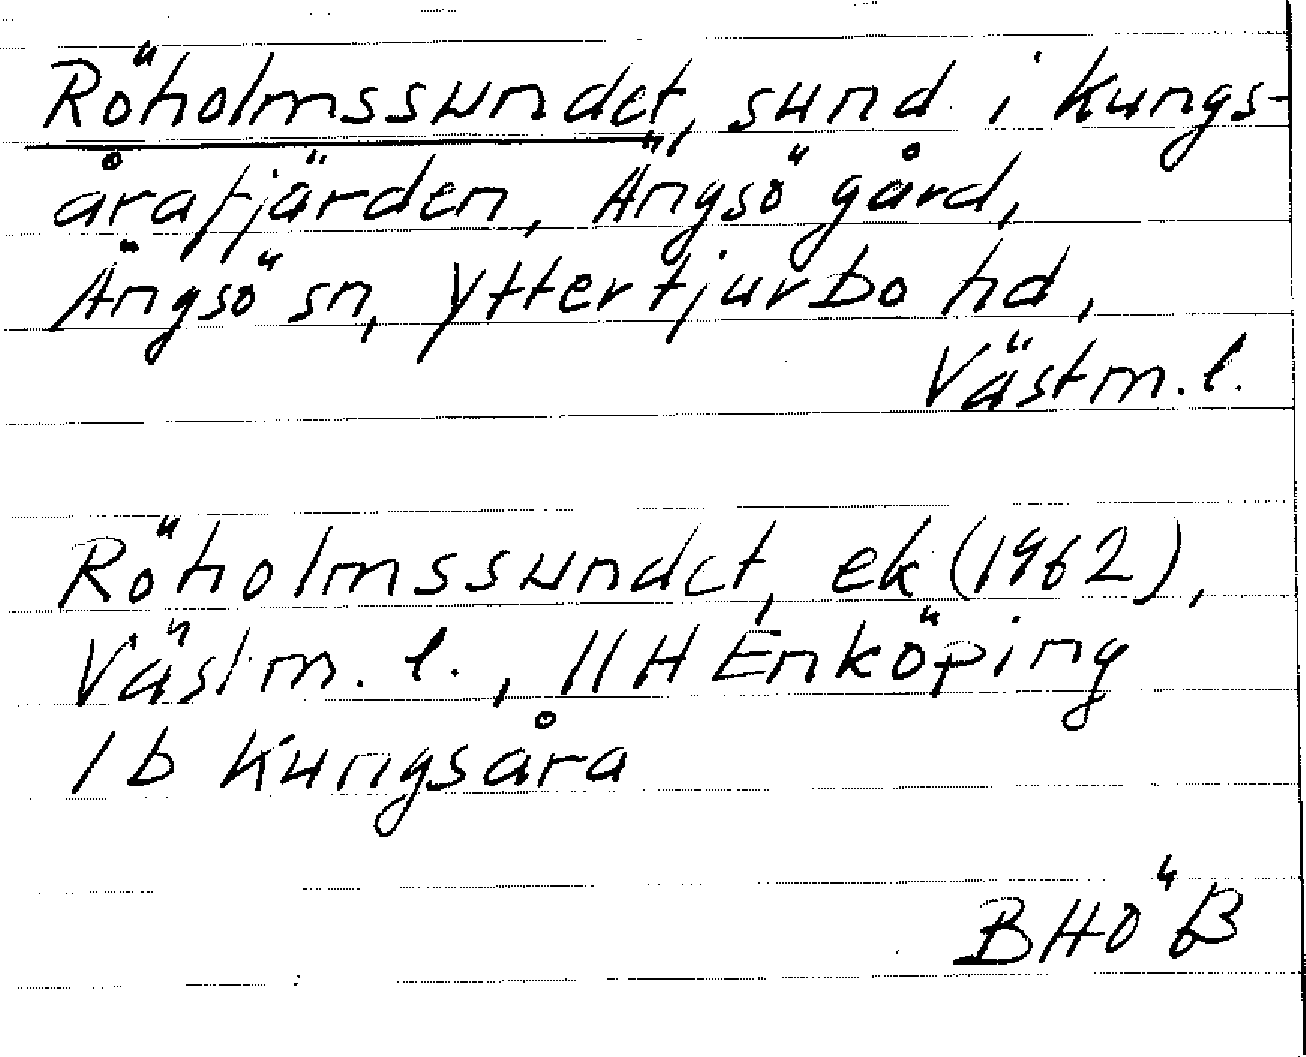 Röholmssundet, sund i Kungs-
årafjärden, Ängsö gård,
Ängsö sn, Yttertjurbo hd,
Västm. l.
Röholmssundet, ek (1962),
Västm. l., 11 H Enköping
1 b Kungsåra
BHÖB